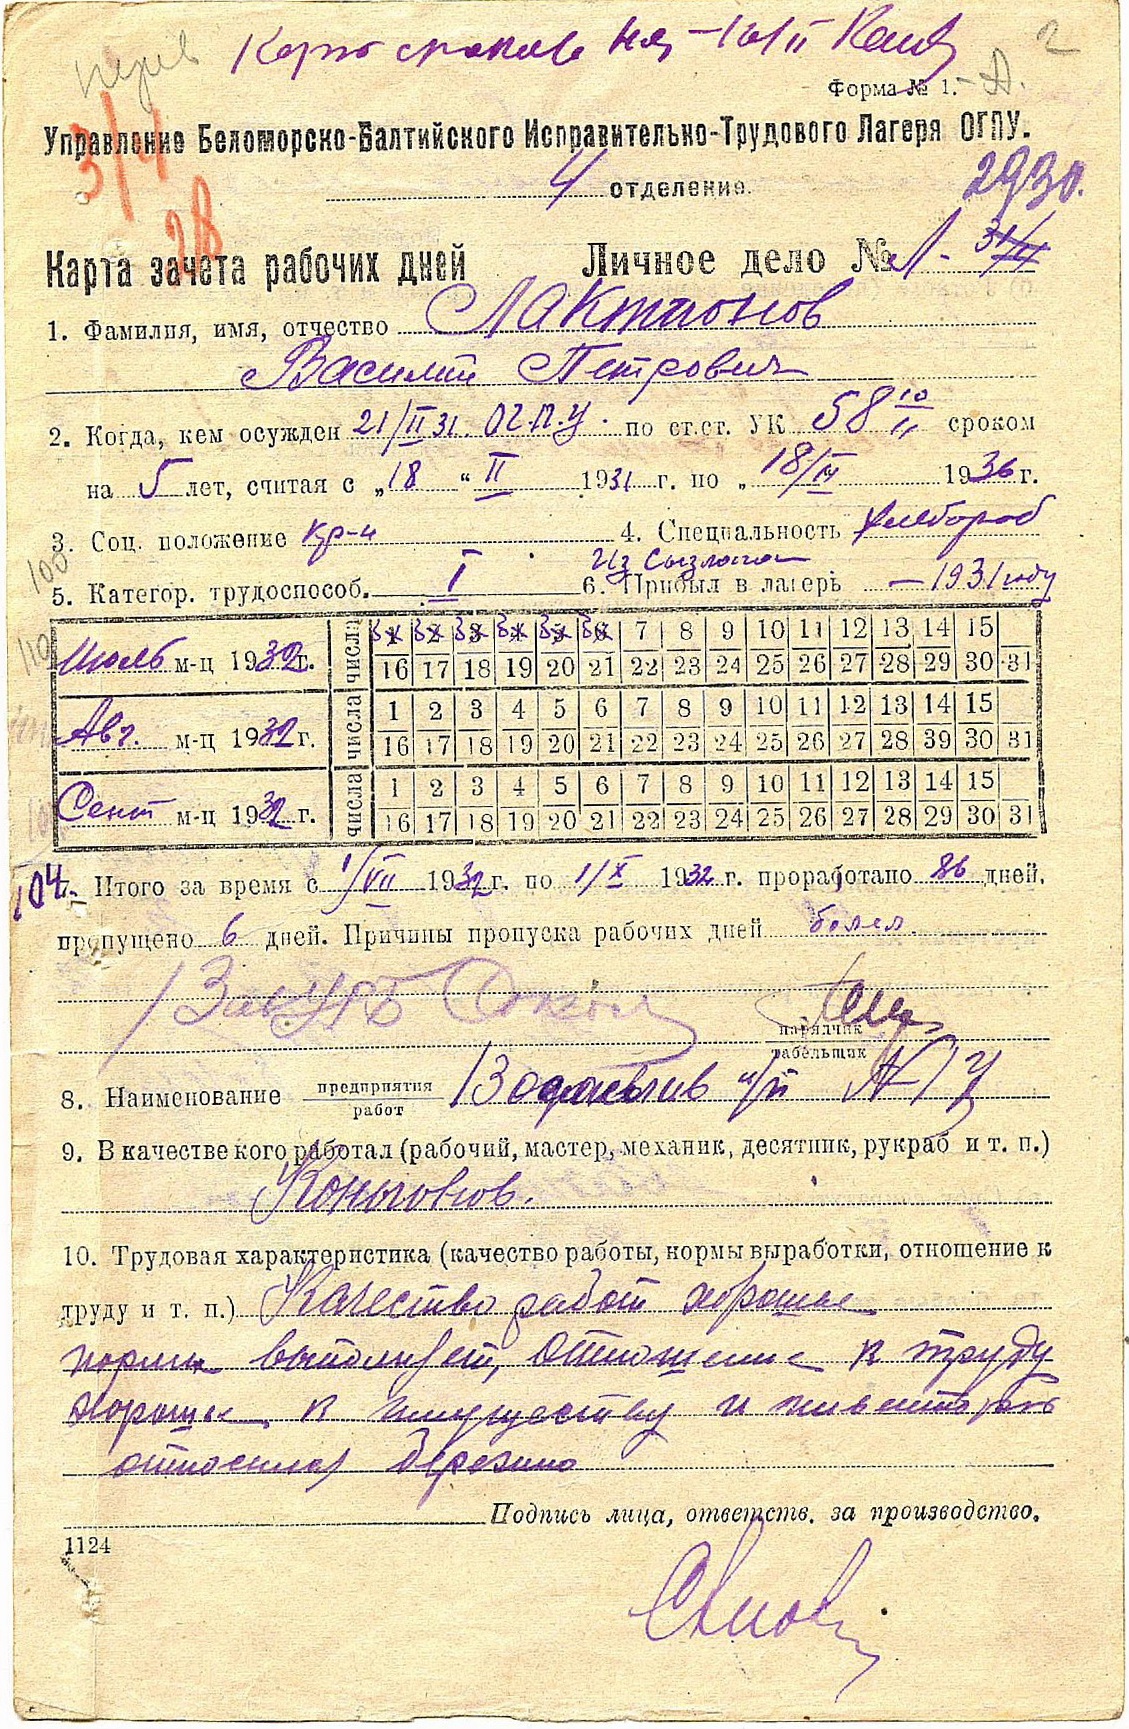 Форма № 1.
Управление Беломорско-Балтийского Исправительно-Трудового Лагеря ОГПУ.
4 отделение
2930.
3/4
Карта зачета рабочих дней Личное дело № Л-
1. Фамилия, имя, отчество Лактионов
Василий Петрович
2. Когда, кем осужден 21/II 31. ОГПУ. по ст.ст. УК 58 10/11 сроком
на 5 лет, считая с „18 “ II 1931 г. по „ 18/IV 1936 г.
3. Соц. положение кр-н 4. Специальность хлебороб
Из Сызлага
5. Категор. трудоспособ. I 6. Прибыл в лагерь — 1931 году
Июль м-ц 1932 г. числа 1 2 3 4 5 6 7 8 9 10 11 12 13 14 15
16 17 18 19 20 21 22 23 24 25 26 27 28 29 30 31
Авг. м-ц 1932 г. числа 1 2 3 4 5 6 7 8 9 10 11 12 13 14 15
16 17 18 19 20 21 22 23 24 25 26 27 28 39 30 31
Сент м-ц 1932 г. числа 1 2 3 4 5 6 7 8 9 10 11 12 13 14 15
16 17 18 19 20 21 22 23 24 25 26 27 28 29 30 31
104
7. Итого за время с 1/VII 1932 г. по 1/X 1932 г. проработано 86 дней,
пропущено 6 дней. Причины пропуска рабочих дней болел.
нарядчик
табельщик
8. Наименование предприятия
работ
9. В качестве кого работал (рабочий, мастер, механик, десятник, рукраб и т. п.)
10. Трудовая характеристика (качество работы, нормы выработки, отношение к
труду и т. п.) Качество работ хорошее
нормы выполняет, отношение к труду
хорошее к имуществу и инвентарю
относился бережно
Подпись лица, ответств. за производство.
1124